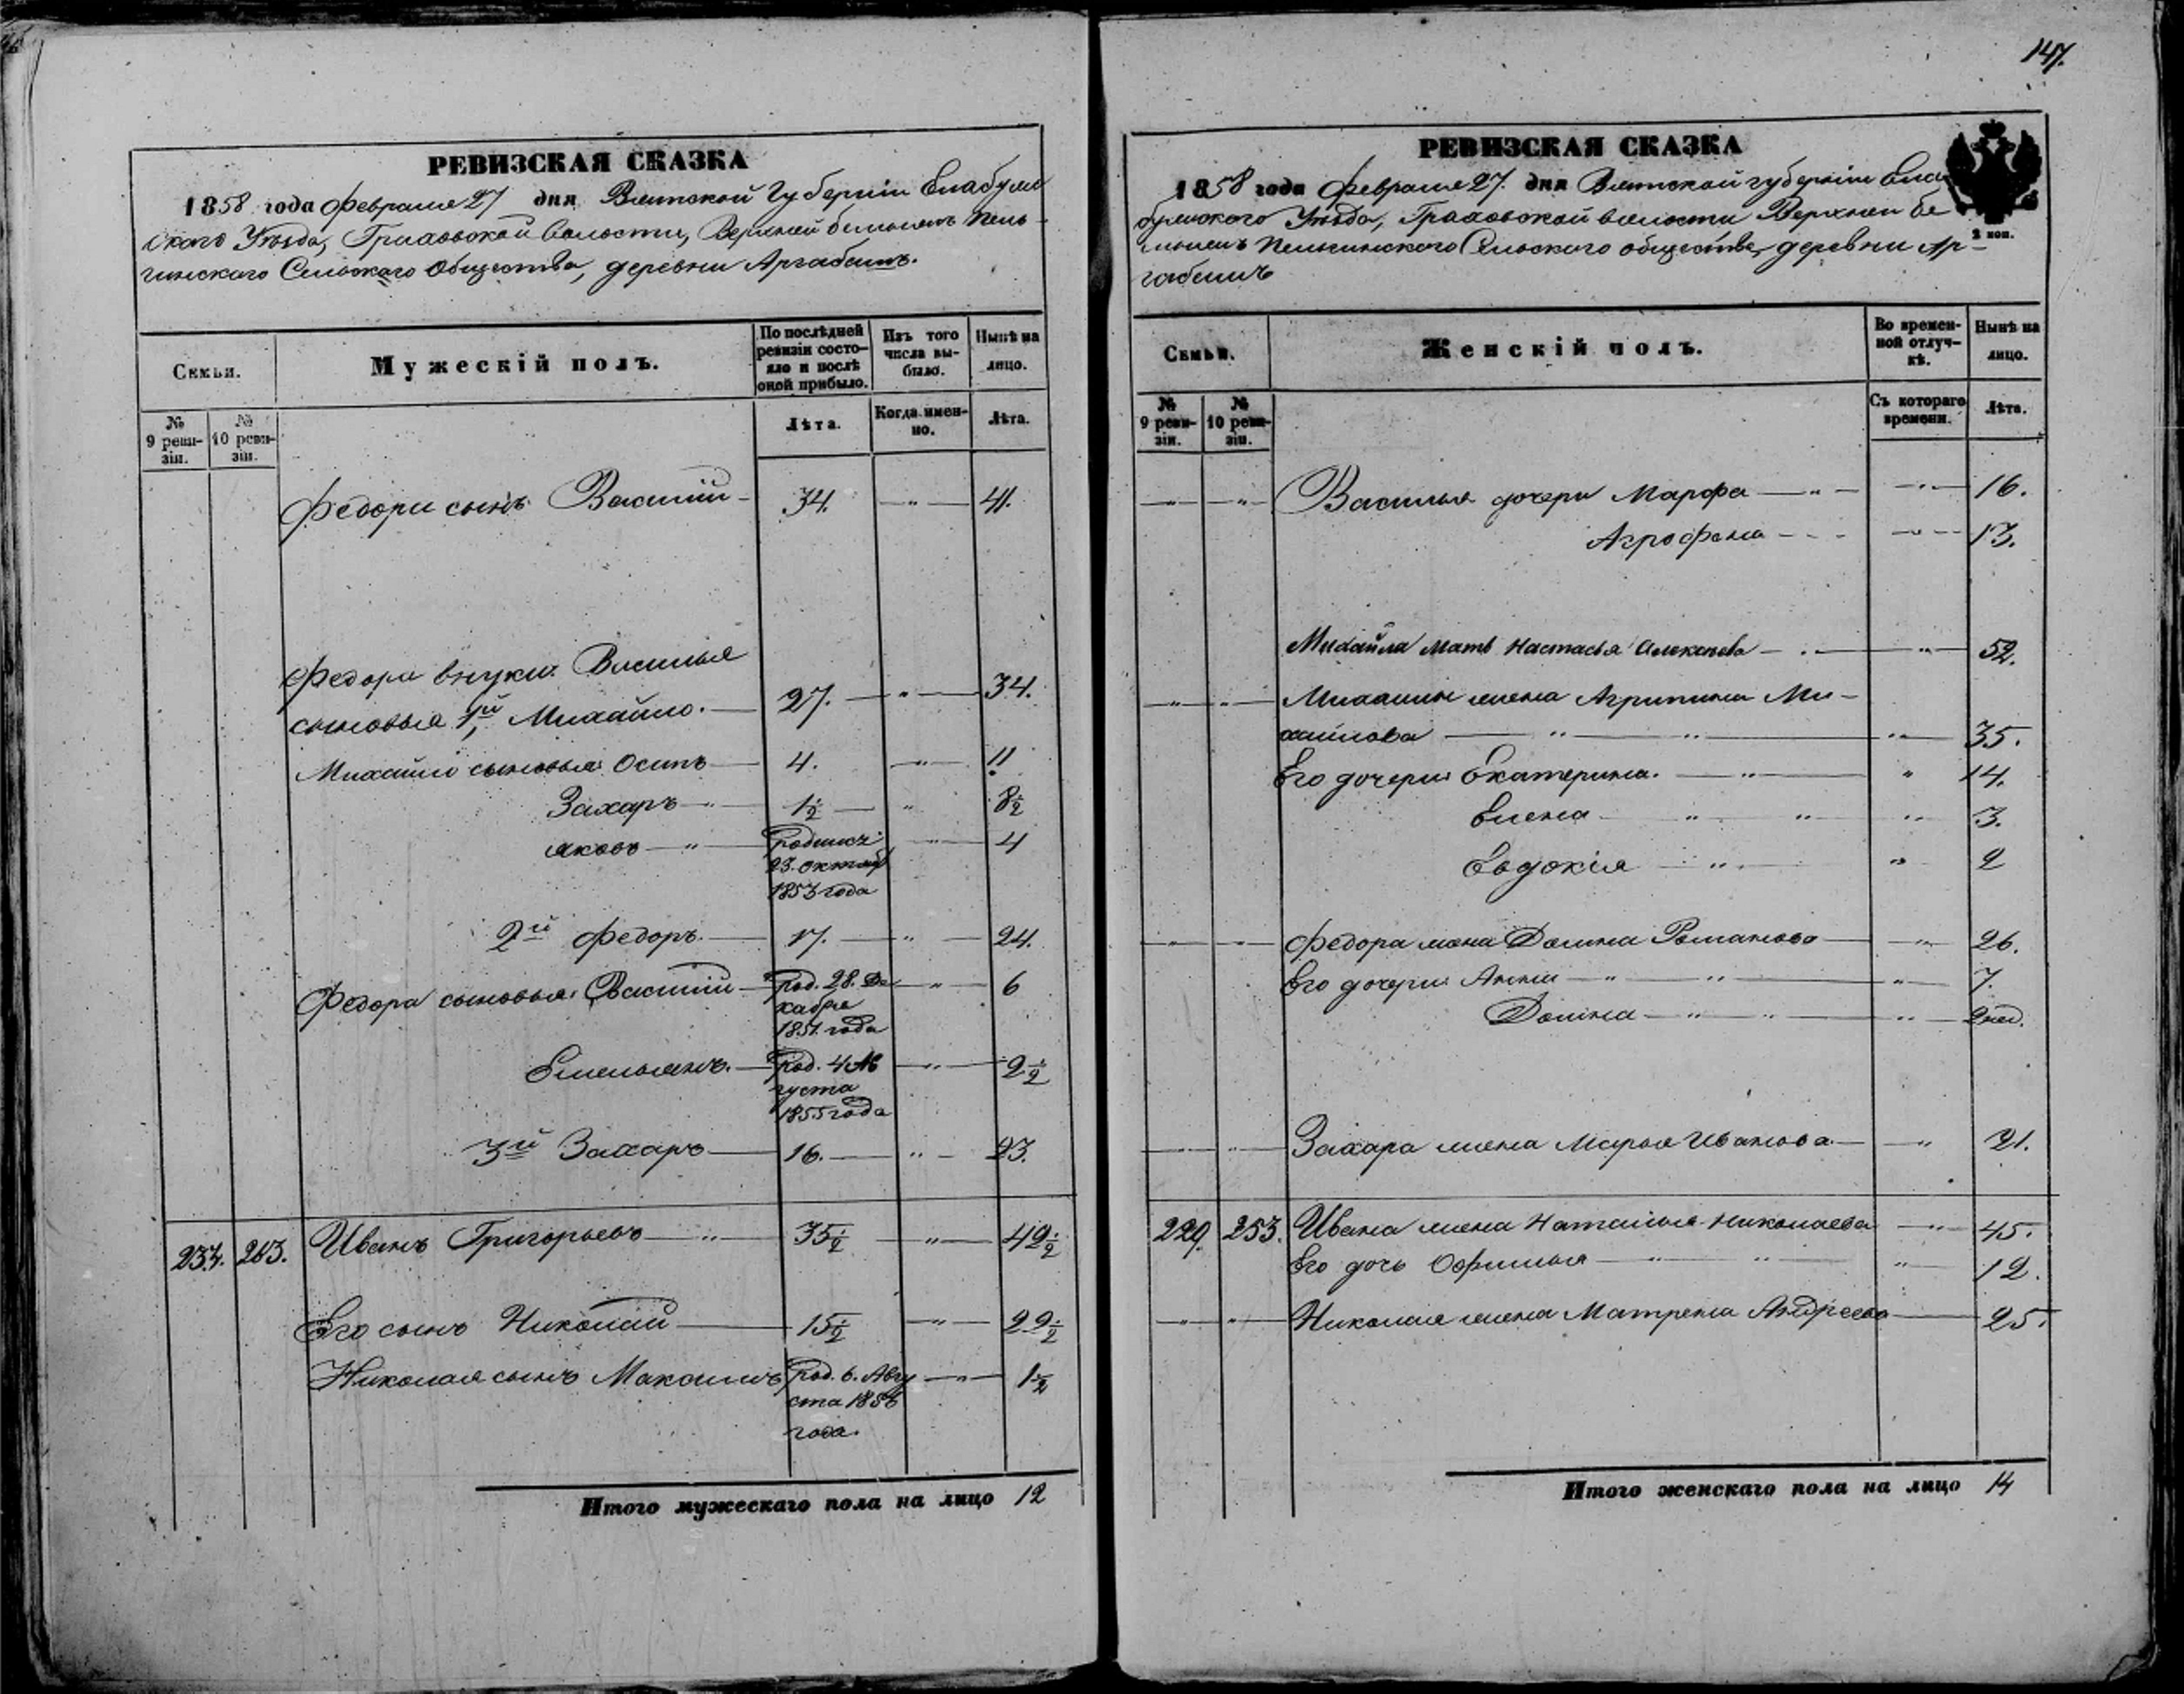 147.
РЕВИЗСКАЯ СКАЗКА
1858 года Февраля 27 дня Вятской Губернiи Елабуж
скаго Уѣзда, Граховской Волости, Верхней
гинскаго Сельскаго Общества, деревни Аргабашъ.
Семьи.
Мужескiй полъ.
По послѣдней ревизiи состо-
яло и послѣ
оной прибыло.
Изъ того
числа вы-
было.
Нынѣ на
лицо.
№
9 реви-
зiи.
№
10 реви-
зiи.
Лѣта.
Когда имен-
но.
Лѣта.
Федора сынъ Василiй 34. " 41.
Федора внуки Василья
сыновья 1й, Михайло. 27. " 34.
Михайло сыновья Осипъ 4. " 11
Захаръ " 1½ " 8½
Яковъ " родился
23. октяб
1853 года " 4
2й Федоръ. 17. " 24.
Федора сыновья Василiй род. 28. Де
кабря
1851. года " 6
Емельянъ. род. 4 Ав
густа
1855 года " 2½
3й Захаръ 16. " 23.
237. 263. Иванъ Григорьевъ " 35½ " 42½
Его сынъ Николай 15½ " 22½
Николая сынъ Максимъ род. 6. Авгу
ста 1856
года. " 1½
Итого мужескаго пола на лицо 12
РЕВИЗСКАЯ СКАЗКА
1858 года Февраля 27. дня Вятской губернiи Ела
бужскаго Уѣзда, Граховской волости Верхней
Сельскаго общества, деревни Ар-
габашъ
2 коп.
Семьи.
Женскiй полъ.
Во времен-
ной отлуч-
кѣ.
Нынѣ на
лицо.
№
9 реви-
зiи.
№
10 реви-
зiи.
Съ котораго
времени.
Лѣта.
" " Василья дочери Марфа " " 16.
Агрофена " 13.
Михайла Мать Настасья Алексѣева " 52.
" " Михайлы жена Агрипина Ми-
хайлова " " " 35.
Его дочери Екатерина. " " 14.
Елена " " " 3.
Евдокiя " " 2
" " Федора жена Домна Романова " 26.
Его дочери Анна " " " 7.
Домна " " " 2 нед.
" " Захара жена Марья Иванова " 21.
229. 253. Ивана жена Наталья Николаева " 45.
Его дочь Офимья " " " 12.
" " Николая жена Матрена Андреева 25.
Итого женскаго пола на лицо 14